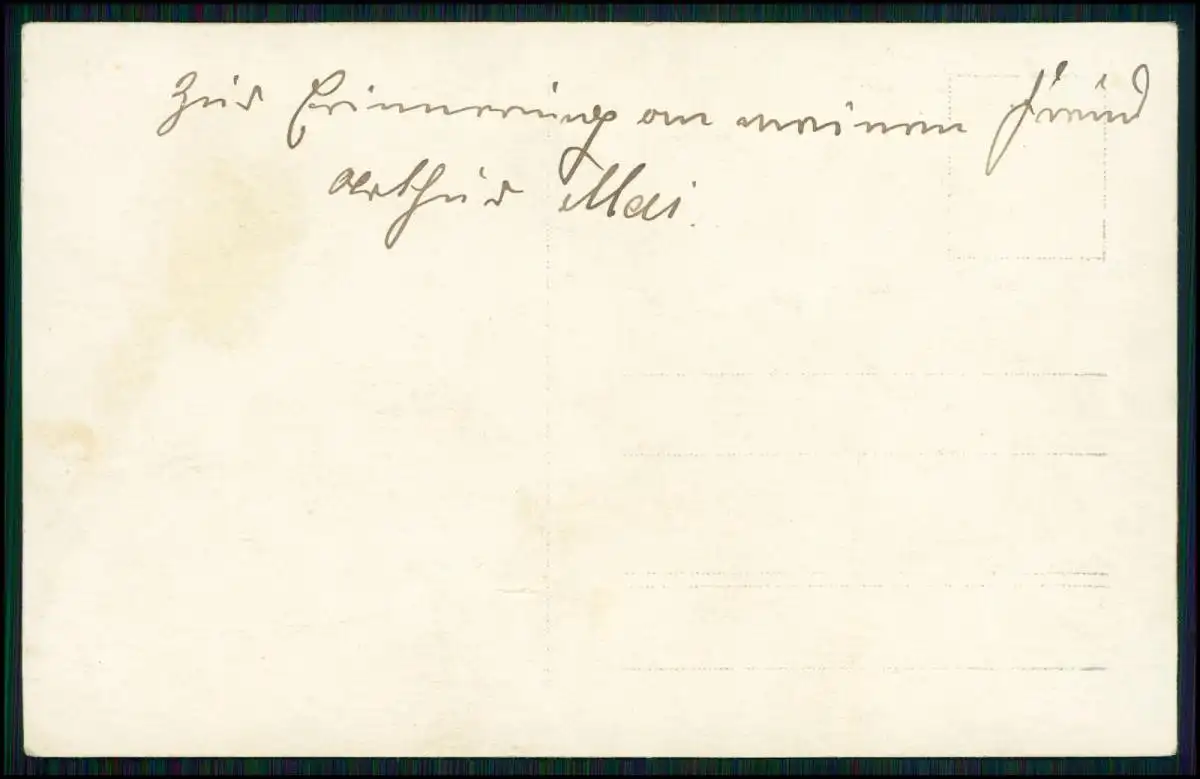 Zur Erinnerung an meinen Freund
Arthur Mai.